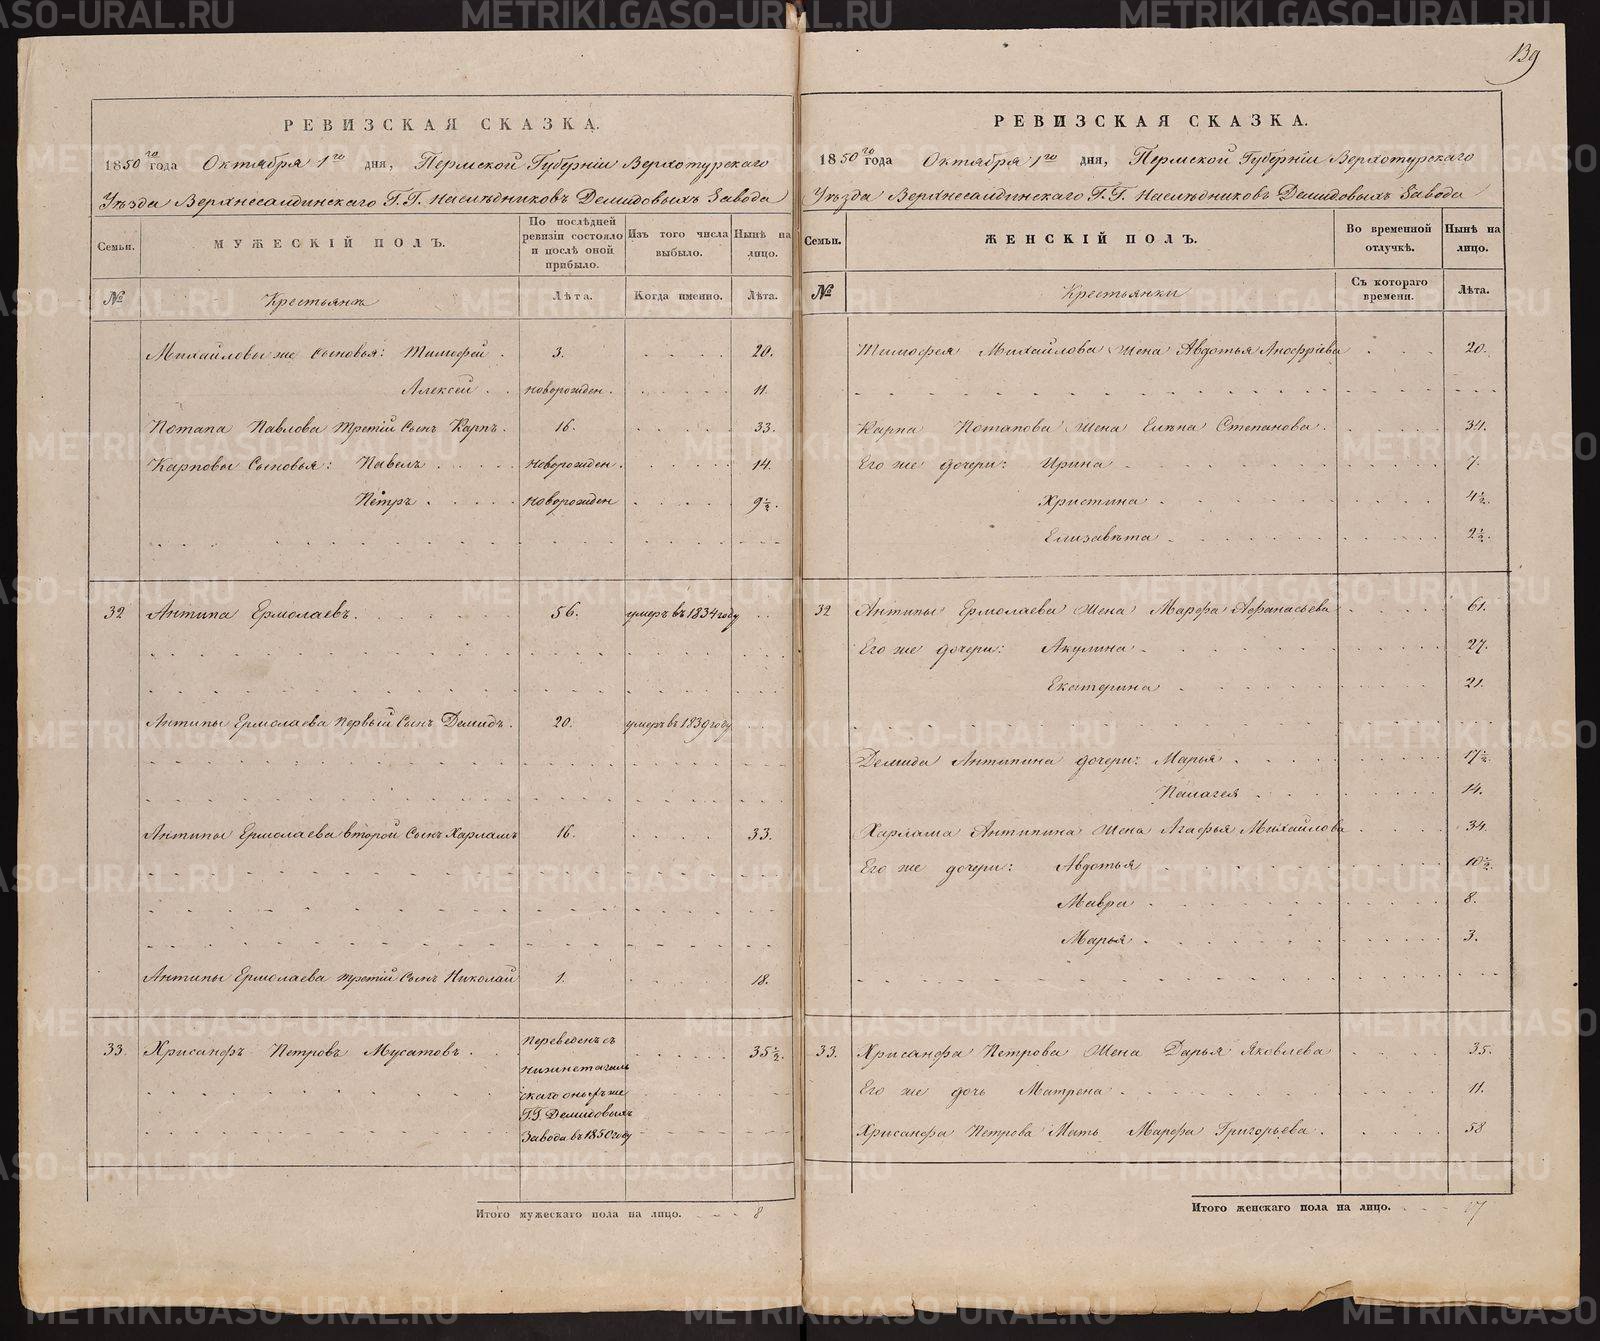 139
РЕВИЗСКАЯ СКАЗКА.
1850го года Октября 1го дня, Пермской Губерніи Верхотурскаго
Уѣзда Верхнесалдинскаго Г.Г. Наслѣдниковъ Демидовыхъ Завода
Семьи. МУЖЕСКІЙ ПОЛЪ. По послѣдней ревизіи состояло и послѣ оной прибыло. Изъ того числа выбыло. Нынѣ на лицо.
№ Крестьянъ Лѣта. Когда именно. Лѣта.
Михайловы же сыновья: Тимофей . 3. 20.
Алексей новорожден. 11.
Потапа Павлова третій сынъ Карпъ. 16. 33.
Карповы сыновья: Павелъ новорожден. 14.
Петръ новорожден 9½.
32 Антипа Ермолаевъ. 56. умеръ въ 1834 году
Антипы Ермолаева первый сынъ Демидъ. 20. умеръ въ 1839 году
Антипы Ермолаева второй сынъ Харламъ 16. 33.
Антипы Ермолаева третій сынъ Николай 1. 18.
33. Хрисанфъ Петровъ Мусатовъ. Переведенъ съ 35½.
Нижнетагиль
скаго оныхъ же
Г.Г. Демидовыхъ
Завода въ 1850 году
Итого мужескаго пола на лицо. 8
РЕВИЗСКАЯ СКАЗКА.
1850го года Октября 1го дня, Пермской Губерніи Верхотурскаго
Уѣзда Верхнесалдинскаго Г.Г. Наслѣдниковъ Демидовыхъ Завода
Семьи. ЖЕНСКІЙ ПОЛЪ. Во временной отлучкѣ. Нынѣ на лицо.
№ Крестьянки Съ котораго времени. Лѣта.
Тимофея Михайлова жена Авдотья Аноффіева 20.
Карпа Потапова жена Елѣна Степанова. 34.
Его же дочери: Ирина 7.
Христина 4½.
Елизавѣта 2½.
32 Антипы Ермолаева жена Марфа Афанасьева 61.
Его же дочери: Акулина 27.
Екатерина 21.
Демида Антипина дочери: Марья 17½.
Палагея 14.
Харлама Антипина жена Агафья Михайлова 34.
Его же дочери: Авдотья 10½.
Мавра 8.
Марья 3.
33. Хрисанфа Петрова жена Дарья Яковлева 35.
Его же дочь Матрена 11.
Хрисанфа Петрова Мать Марфа Григорьева. 58
Итого женскаго пола на лицо. 17
METRIKI.GASO-URAL.RU